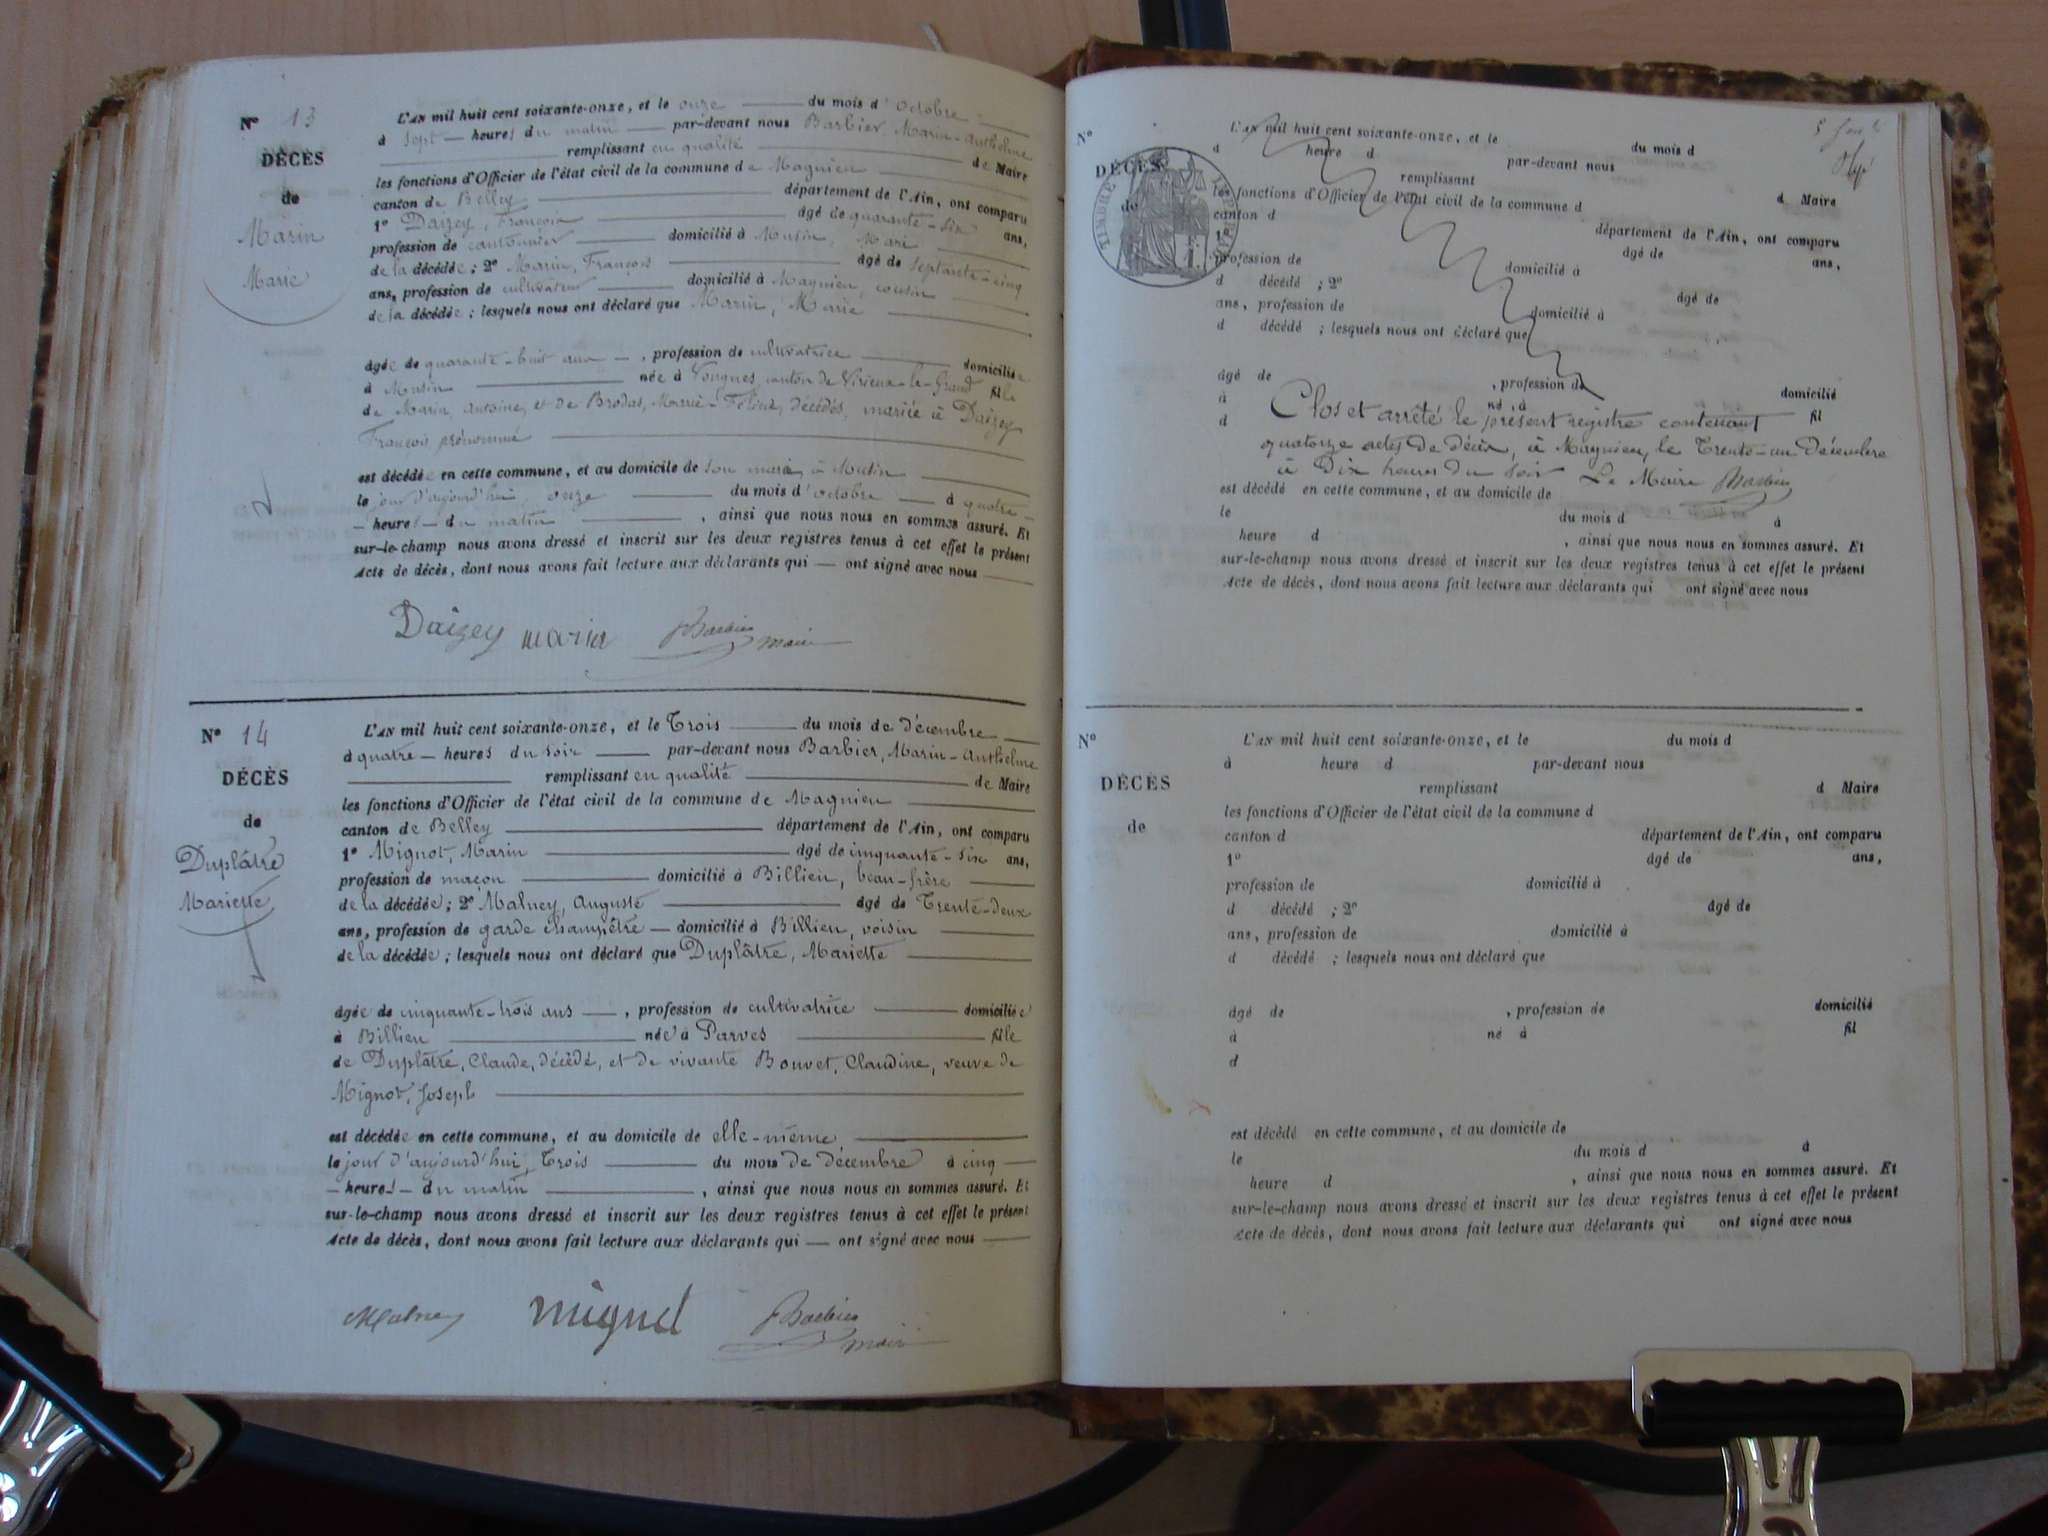 N° 13
DÉCÈS
de
Marin
Marie
L'AN mil huit cent soixante-onze, et le onze du mois d'octobre
à sept heures du matin par-devant nous Barbier, Marin-Anthelme
remplissant en qualité de Maire
les fonctions d'Officier de l'état civil de la commune de Magnieu
canton de Belley département de l'Ain, ont comparu
1° Daizey, François âgé de quarante-six ans,
profession de cantonnier domicilié à Musin, Mari
de la décédée ; 2° Marin, François âgé de septante-cinq
ans, profession de cultivateur domicilié à Magnieu, cousin
de la décédée ; lesquels nous ont déclaré que Marin, Marie
âgée de quarante-huit ans, profession de cultivatrice domiciliée
à Musin née à Vongnes, canton de Virieu-le-Grand fille
de Marin, Antoine, et de Brodas, Marie-Féline, décédés, mariée à Daizey
François prénommé
est décédée en cette commune, et au domicile de son mari, à Musin
le jour d'aujourd'hui, onze du mois d'octobre à quatre
heures du matin, ainsi que nous nous en sommes assuré. Et
sur-le-champ nous avons dressé et inscrit sur les deux registres tenus à cet effet le présent
Acte de décès, dont nous avons fait lecture aux déclarants qui — ont signé avec nous
Daizey marin Barbier maire
N° 14
DÉCÈS
de
Duplâtre
Mariette
L'AN mil huit cent soixante-onze, et le Trois du mois de décembre
à quatre heures du soir par-devant nous Barbier, Marin-Anthelme
remplissant en qualité de Maire
les fonctions d'Officier de l'état civil de la commune de Magnieu
canton de Belley département de l'Ain, ont comparu
1° Mignot, Marin âgé de cinquante-six ans,
profession de maçon domicilié à Billieu, beau-frère
de la décédée ; 2° Malney, Auguste âgé de Trente-deux
ans, profession de garde champêtre domicilié à Billieu, voisin
de la décédée ; lesquels nous ont déclaré que Duplâtre, Mariette
âgée de cinquante-trois ans, profession de cultivatrice domiciliée
à Billieu née à Parves fille
de Duplâtre, Claude, décédé, et de vivante Bouvet, Claudine, veuve de
Mignot, Joseph
est décédée en cette commune, et au domicile de elle-même,
le jour d'aujourd'hui, Trois du mois de décembre à cinq
heures du matin, ainsi que nous nous en sommes assuré. Et
sur-le-champ nous avons dressé et inscrit sur les deux registres tenus à cet effet le présent
Acte de décès, dont nous avons fait lecture aux déclarants qui — ont signé avec nous
Malney mignot Barbier maire
N°
DÉCÈS
de
TIMBRE
L'AN mil huit cent soixante-onze, et le du mois d
à heure d par-devant nous
remplissant d Maire
les fonctions d'Officier de l'état civil de la commune d
canton d département de l'Ain, ont comparu
1° âgé de ans,
profession de domicilié à
d décédé ; 2° âgé de
ans, profession de domicilié à
d décédé ; lesquels nous ont déclaré que
âgé de , profession de domicilié
à né à fil
d
Clos et arrêté le présent registre contenant
quatorze actes de décès, à Magnieu, le Trente-un décembre
à Dix heures du soir Le Maire Barbier
est décédé en cette commune, et au domicile de
le du mois d à
heure d , ainsi que nous nous en sommes assuré. Et
sur-le-champ nous avons dressé et inscrit sur les deux registres tenus à cet effet le présent
Acte de décès, dont nous avons fait lecture aux déclarants qui ont signé avec nous
N°
DÉCÈS
de
L'AN mil huit cent soixante-onze, et le du mois d
à heure d par-devant nous
remplissant d Maire
les fonctions d'Officier de l'état civil de la commune d
canton d département de l'Ain, ont comparu
1° âgé de ans,
profession de domicilié à
d décédé ; 2° âgé de
ans, profession de domicilié à
d décédé ; lesquels nous ont déclaré que
âgé de , profession de domicilié
à né à fil
d
est décédé en cette commune, et au domicile de
le du mois d à
heure d , ainsi que nous nous en sommes assuré. Et
sur-le-champ nous avons dressé et inscrit sur les deux registres tenus à cet effet le présent
Acte de décès, dont nous avons fait lecture aux déclarants qui ont signé avec nous